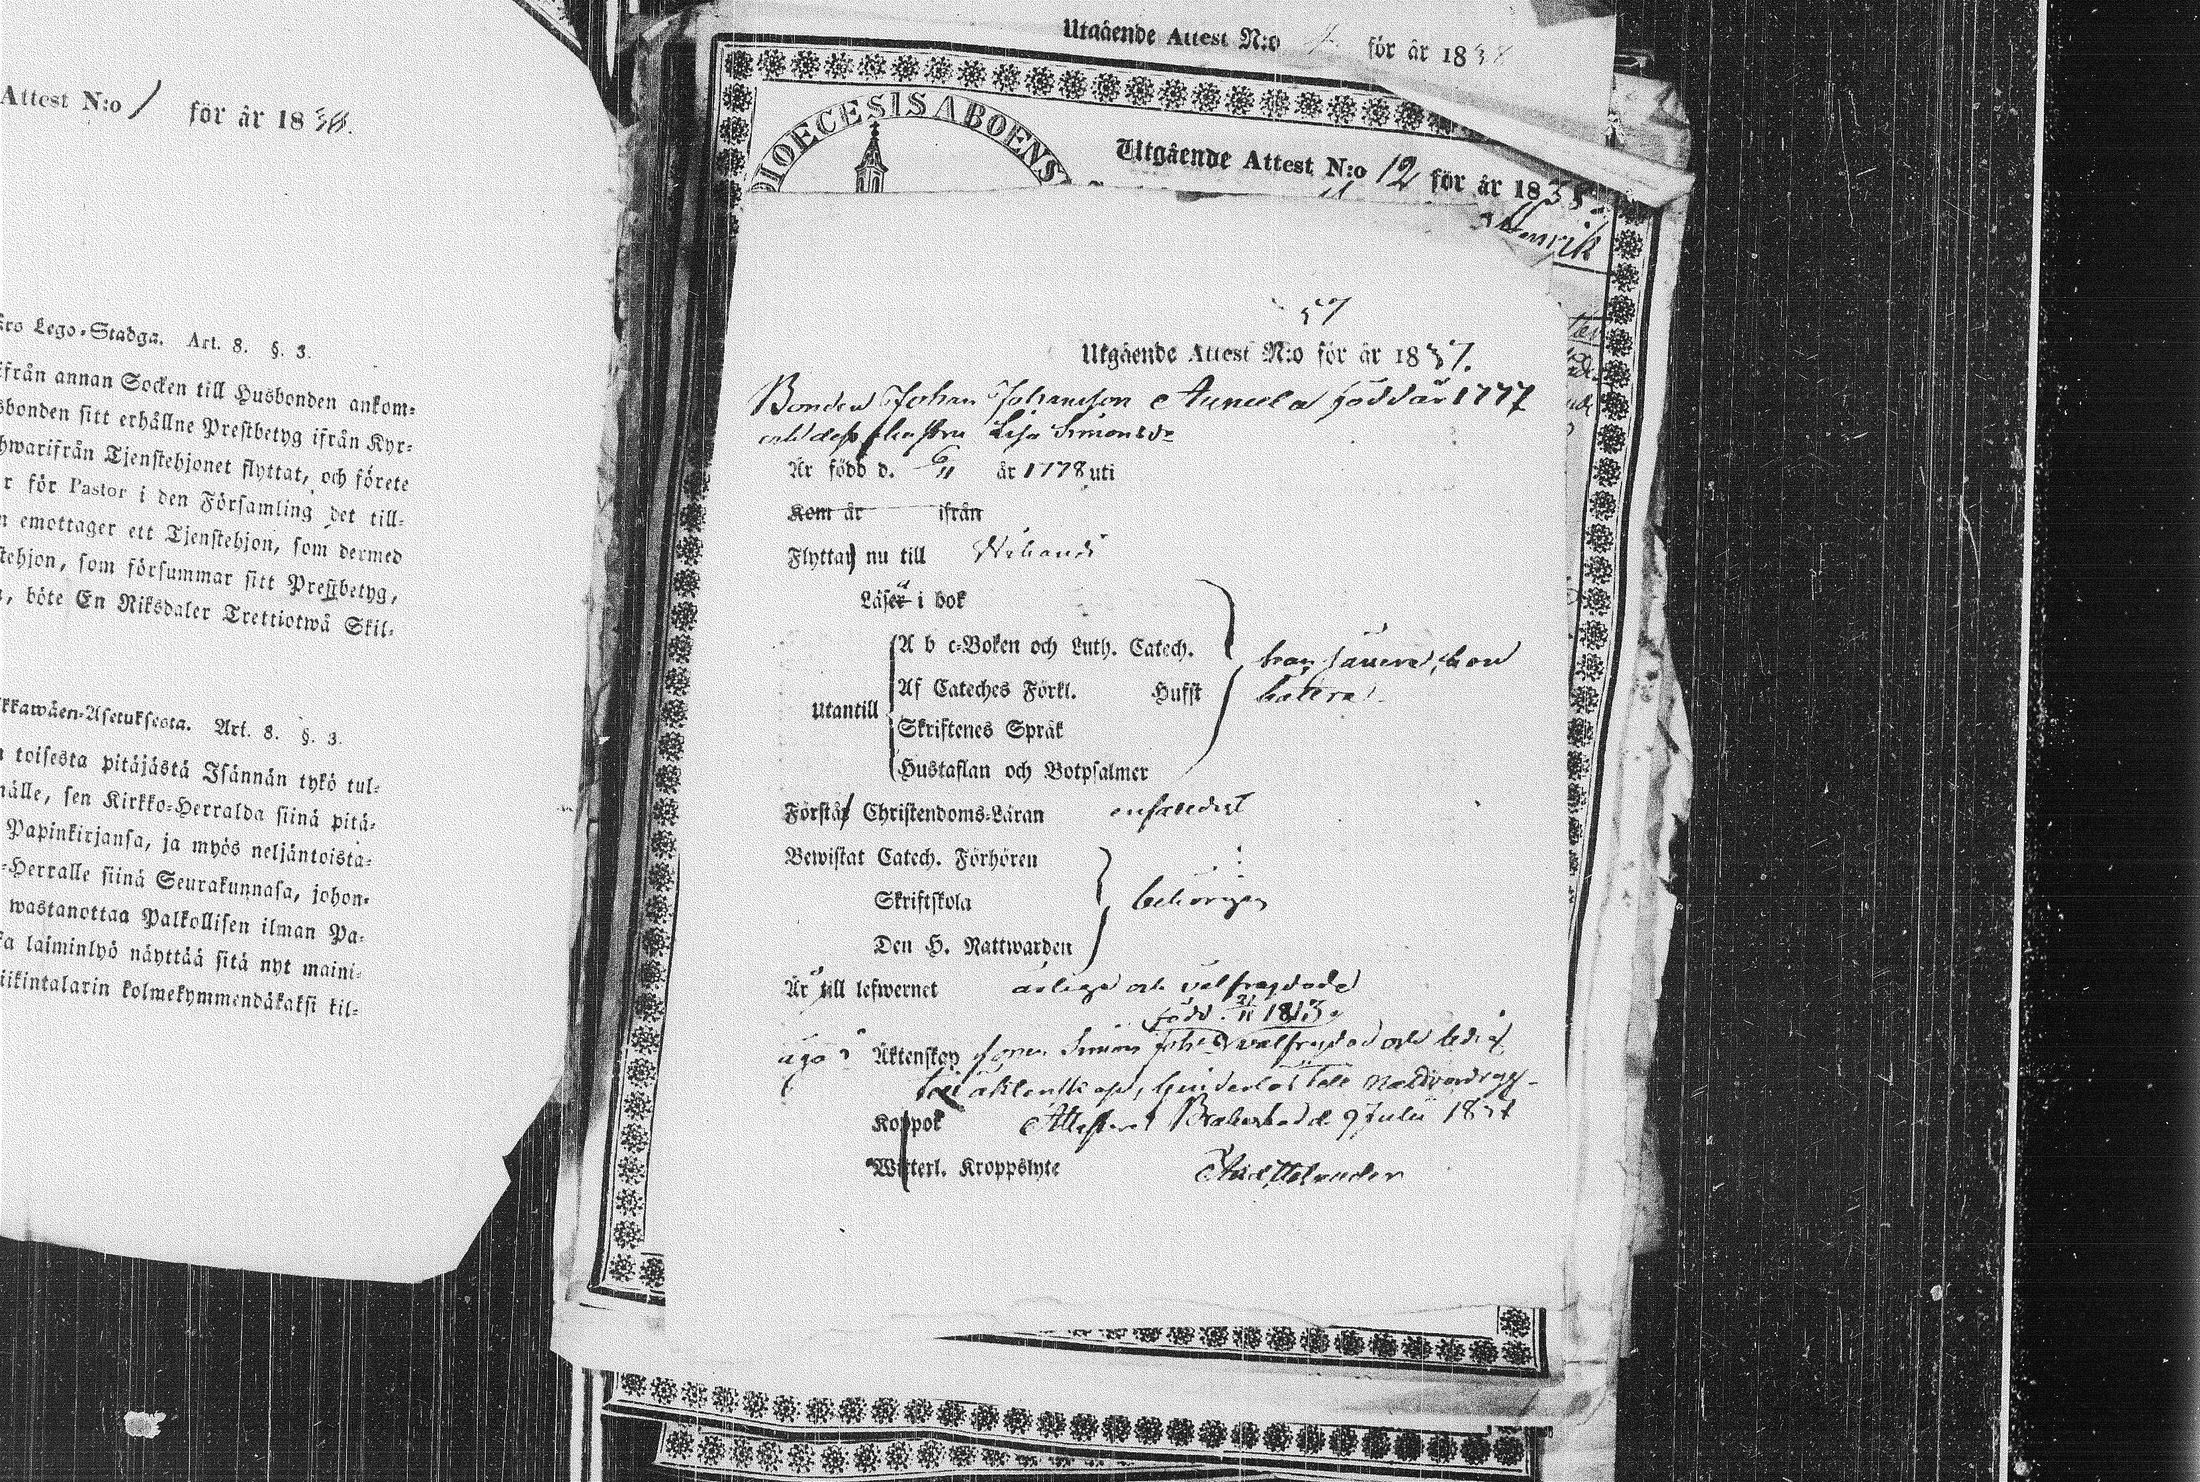 Attest N:o 1 för år 1838.
Lego-Stadga. Art. 8. §. 3.
ifrån annan Socken till Husbonden ankom-
sbonden sitt erhållne Prestbetyg ifrån Kyr-
hwarifrån Tjenstehjonet flyttat, och förete
r för Pastor i den Församling det till-
n emottager ett Tjenstehjon, som dermed
stehjon, som försummar sitt Prestbetyg,
, böte En Riksdaler Trettiotwå Skil-
kkawäen-Asetuksesta. Art. 8. §. 3.
toisesta pitäjästä Isännän tykö tul-
hälle, sen Kirkko-Herralda siinä pitä-
Papinkirjansa, ja myös neljäntoista-
-Herralle siinä Seurakunnasa, johon-
wastanottaa Palkollisen ilman Pa-
ka laiminlyö näyttää sitä nyt maini-
iikintalarin kolmekymmendäkaksi kil-
Utgående Attest N:o för år 1838
DIOECESIS ABOENS
Utgående Attest N:o 12 för år 1838.
Henrik
57
Utgående Attest N:o för år 1837.
Bonden Johan Johansson Aunula född år 1777
och dess hustru Lisa Simonsdr
Är född d. 6/11 år 1778 uti
Kom år ifrån
Flyttar nu till
Läser i bok
A b c-Boken och Luth. Catech.
han svårare, hon
Af Cateches Förkl. Hufst
bättre
Utantill
Skriftenes Språk
Hustaflan och Botpsalmer
Förstår Christendoms-Läran enfaldigt
Bewistat Catech. Förhören
Skriftskola
behörigen
Den H. Nattwarden
Är till lefwernet ärliga och välfrägdade
född 21/11 1813.
äga Äktenskap sonen Simon välfrägdad och ledig
till äktenskap, till Nattvardsgg-
Koppor Attesterat Brahestad d. 9 Julii 1837
Witterl. Kroppslyte